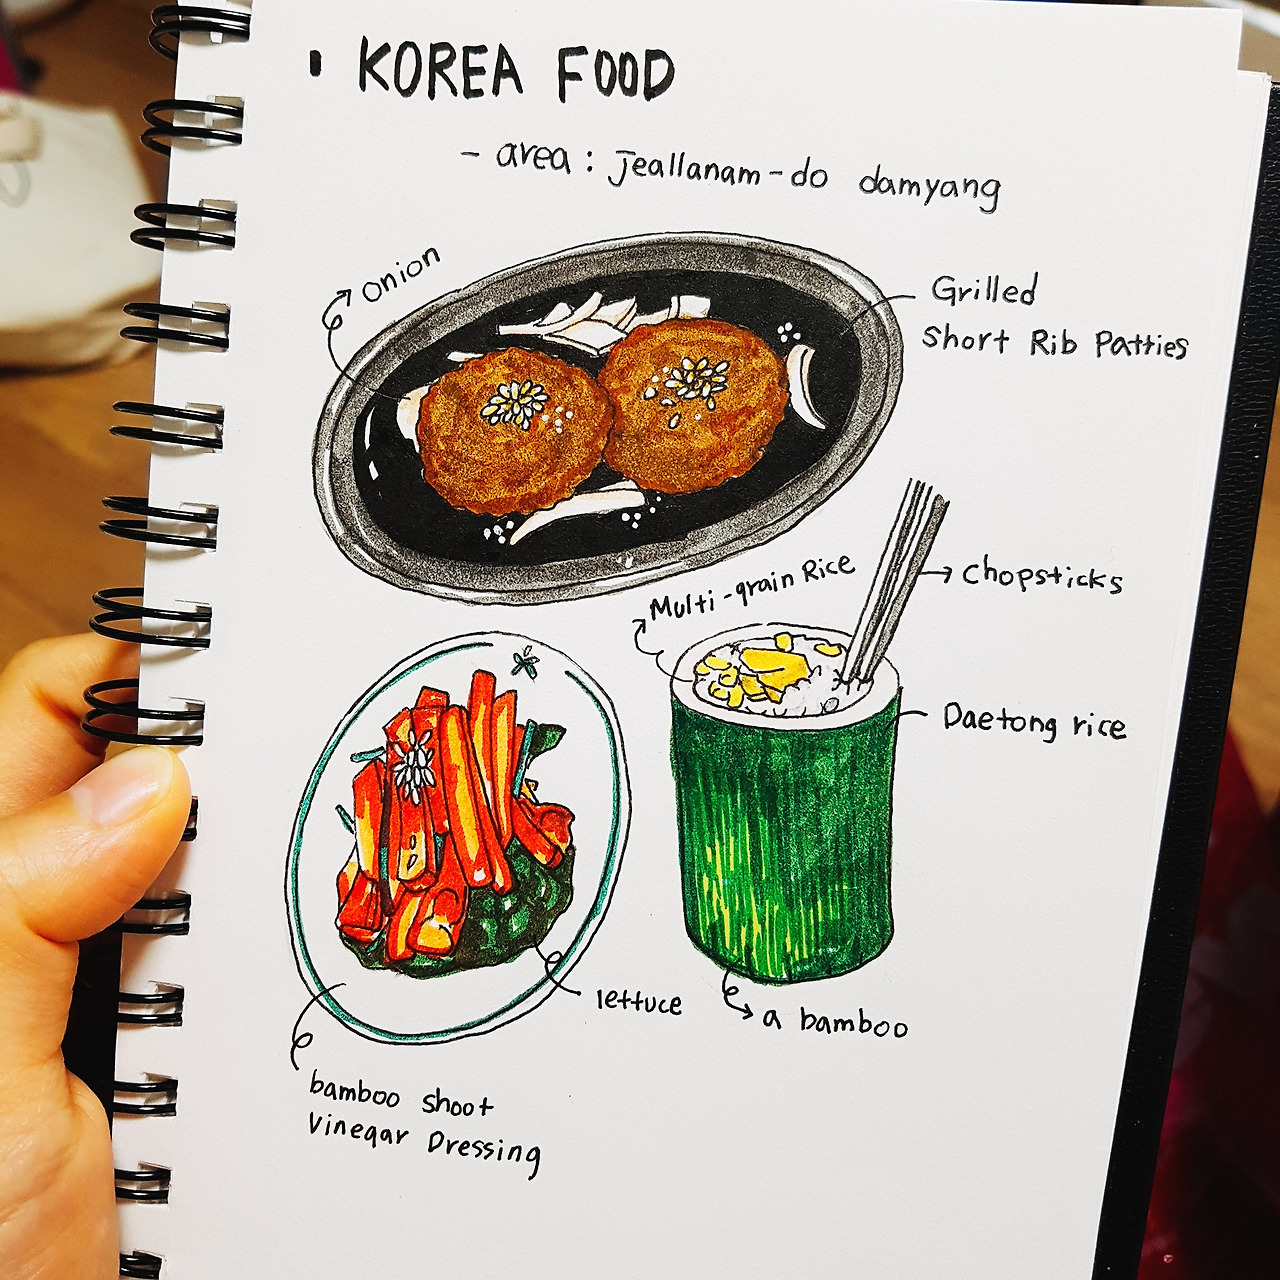 KOREA FOOD
- area : Jeallanam-do damyang
onion
Grilled
Short Rib Patties
Multi-grain Rice
chopsticks
Daetong rice
lettuce
a bamboo
bamboo shoot
Vinegar Dressing